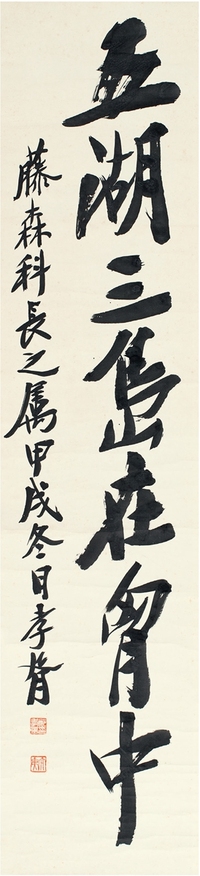 五湖三島在胷中
藤森科長之属甲戌冬日孝胥